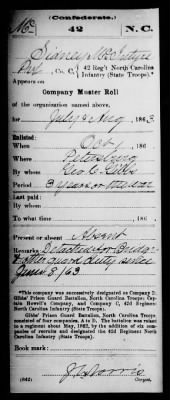 (Confederate.)
Mc 42 N.C.
Sidney McIntyre
Pvt, Co. C, 42 Reg't North Carolina
Infantry (State Troops).*
Appears on
Company Muster Roll
of the organization named above,
for July & Aug, 1863
Enlisted:
When Oct 1, 186
Where Petersburg
By whom Geo. C. Gibbs
Period 3 years or the war
Last paid:
By whom
To what time , 186 .
Present or absent Absent
Remarks: Detailed for
guard duty since
June 8/63
*This company was successively designated as Company D,
Gibbs' Prison Guard Battalion, North Carolina Troops; Cap-
tain Howell's Company, and Company C, 42d Regiment
North Carolina Infantry (State Troops).
Gibbs' Prison Guard Battalion, North Carolina Troops,
consisted of four companies, A to D. The battalion was raised
to a regiment about May, 1862, by the addition of six com-
panies of recruits and designated the 42d Regiment North
Carolina Infantry (State Troops).
Book mark:
(642) Copyist.